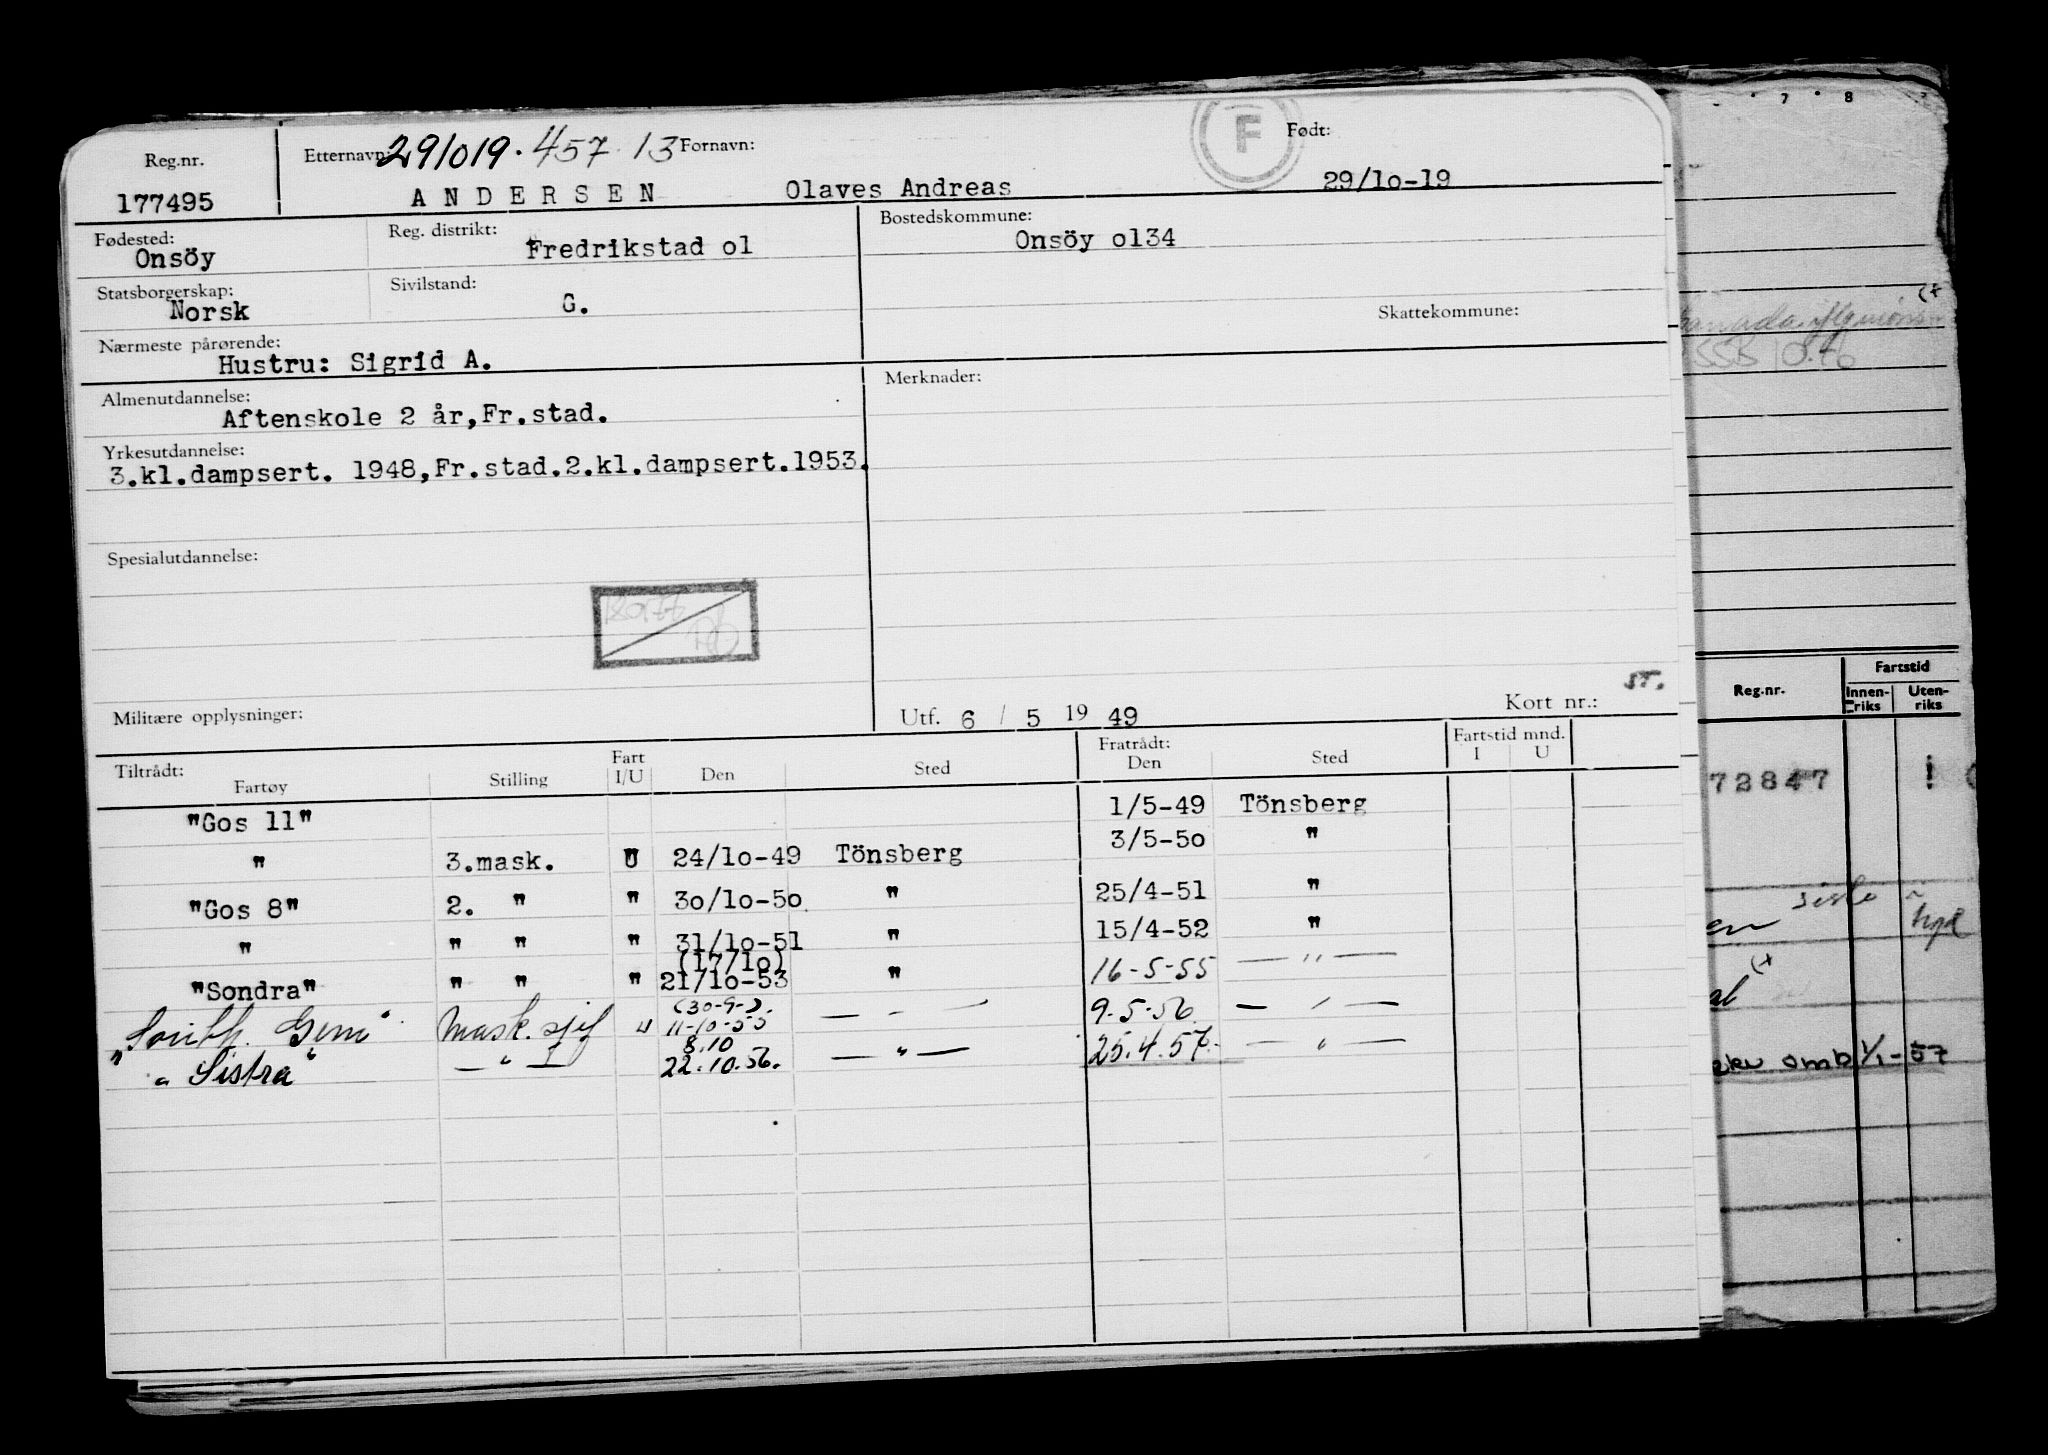 Reg.nr. Etternavn: 291019. 457 13 Fornavn: F Født:
177495 ANDERSEN Olaves Andreas 29/1o-19
Fødested: Reg. distrikt: Bostedskommune:
Onsöy Fredrikstad o1 Onsöy o134
Statsborgerskap: Sivilstand:
Norsk G. Skattekommune:
Nærmeste pårørende:
Hustru: Sigrid A.
Almenutdannelse: Merknader:
Aftenskole 2 år,Fr.stad.
Yrkesutdannelse:
3.kl.dampsert. 1948,Fr.stad.2.kl.dampsert.1953.
Spesialutdannelse:
ST.
Militære opplysninger: Utf. 6 / 5 19 49 Kort nr.:
Tiltrådt: Fart Fratrådt: Fartstid mnd.
Fartøy Stilling I/U Den Sted Den Sted I U
"Gos 11" 1/5-49 Tönsberg
" 3.mask. U 24/1o-49 Tönsberg 3/5-5o "
"Gos 8" 2. " " 3o/1o-5o " 25/4-51 "
" " " " 31/1o-51 " 15/4-52 "
(17/1o)
"Sondra" " " " 21/1o-53 " 16-5-55 — " —
(30-9-).
"South. Gem" Mask.sjef " 11-10-55 — " — 9.5.56. — " —
8.10
"Sistra" — " I — 22.10.56. — " — 25.4.57. — " —
7 8
SSB 10.
Reg.nr. Fartstid
Innen-riks Uten-riks
72847
siste
omb 1/1-57